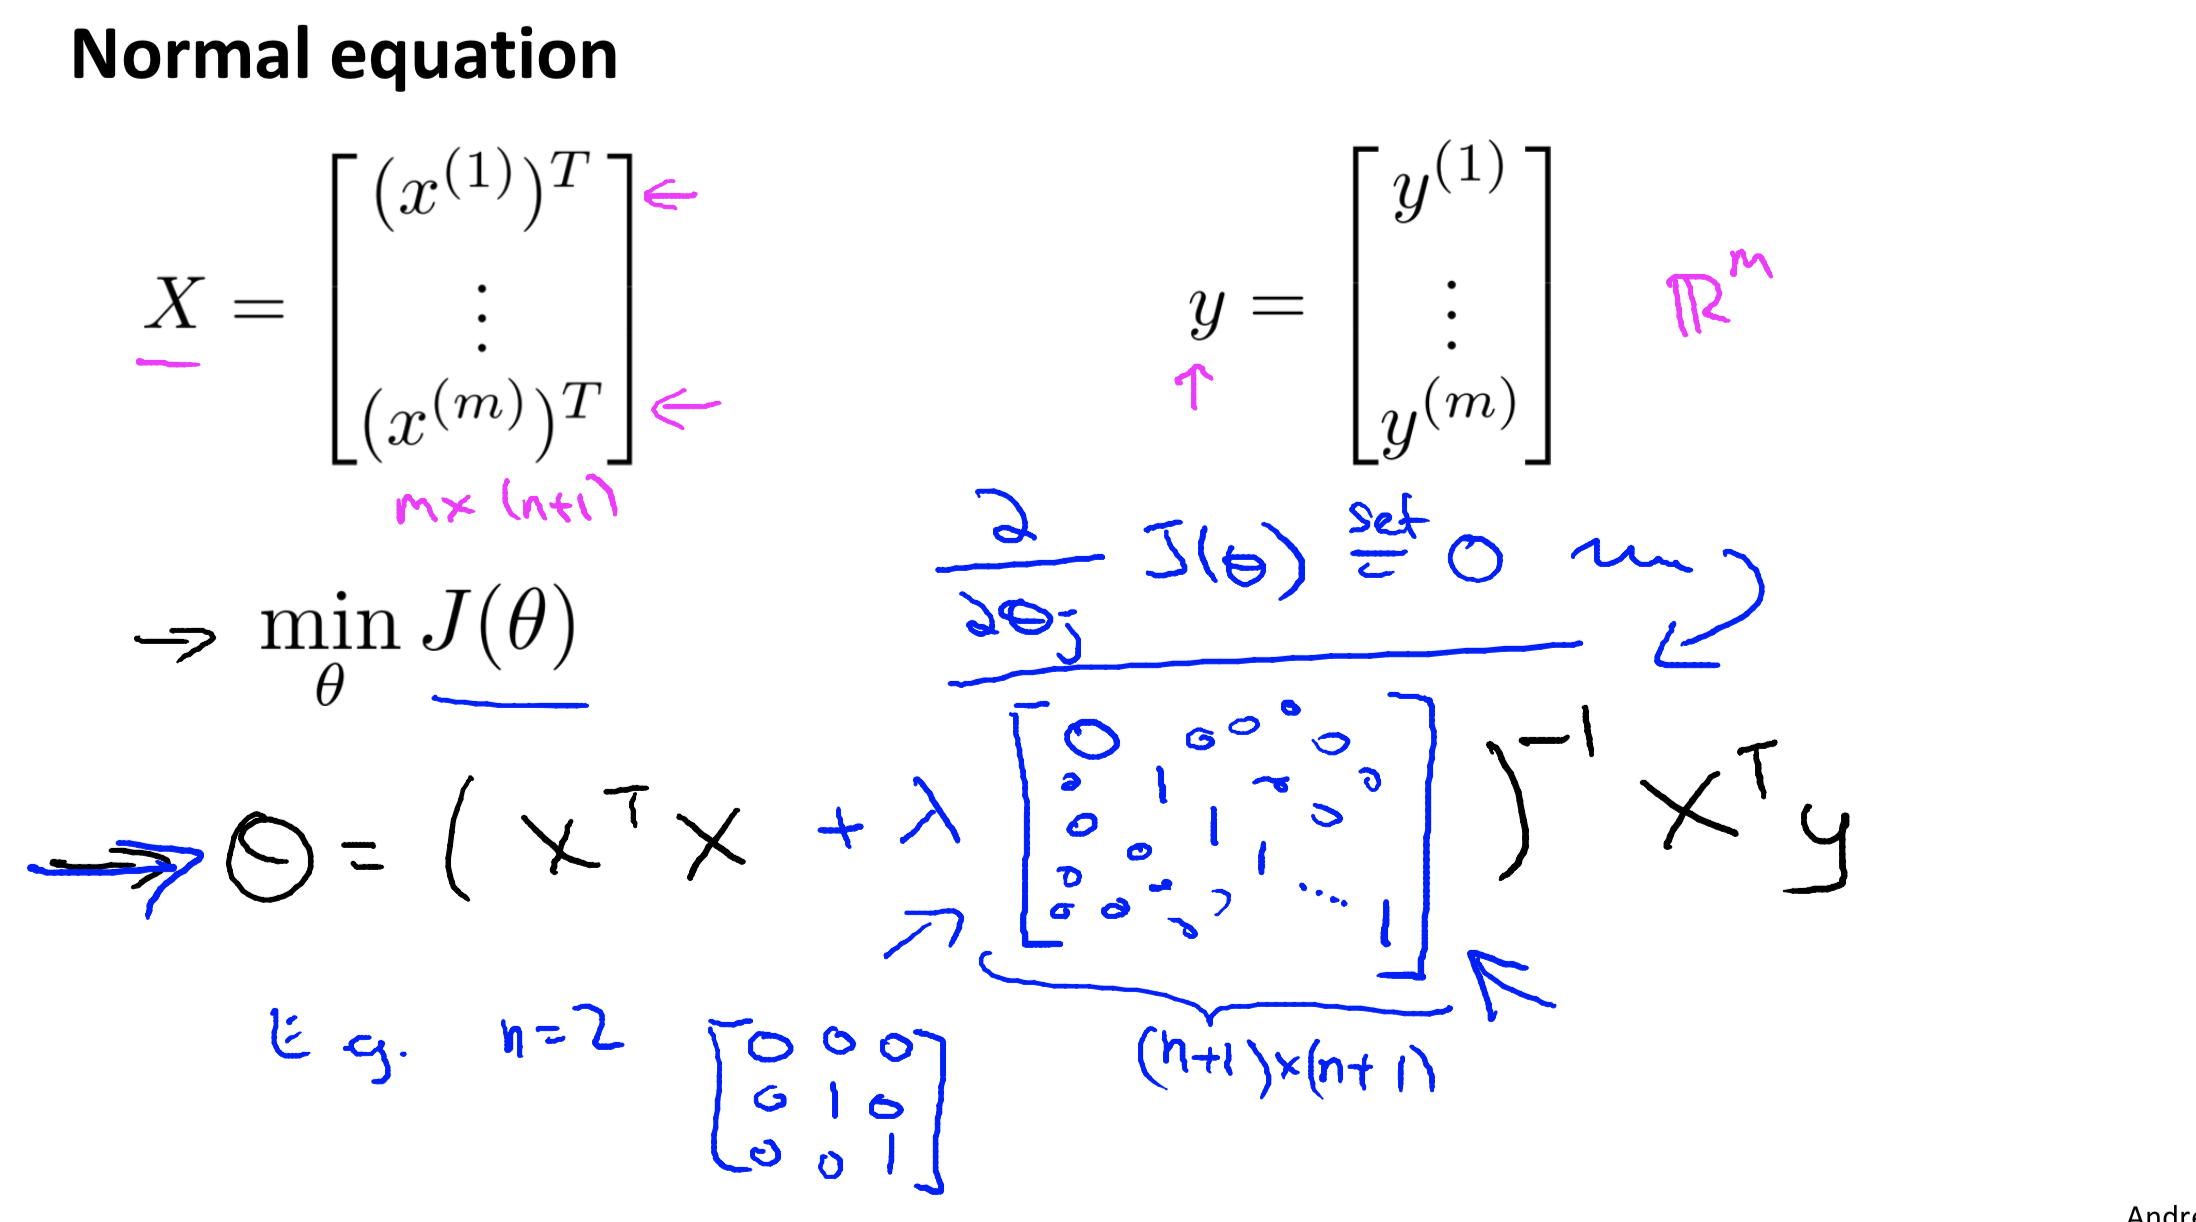 Normal equation
X = [ (x^(1))^T ⋮ (x^(m))^T ] ← ←
m × (n+1)
y = [ y^(1) ⋮ y^(m) ] ℝ^m
↑
→ min_θ J(θ)
∂/∂θ_j J(θ) set = 0
→ θ = ( X^T X + λ [ 0 0 0 0 0 1 0 0 1 0 0 1 0 0 0 ⋱ 1 ] )^-1 X^T y
(n+1)×(n+1)
E.g. n=2
[ 0 0 0
0 1 0
0 0 1 ]
Andre